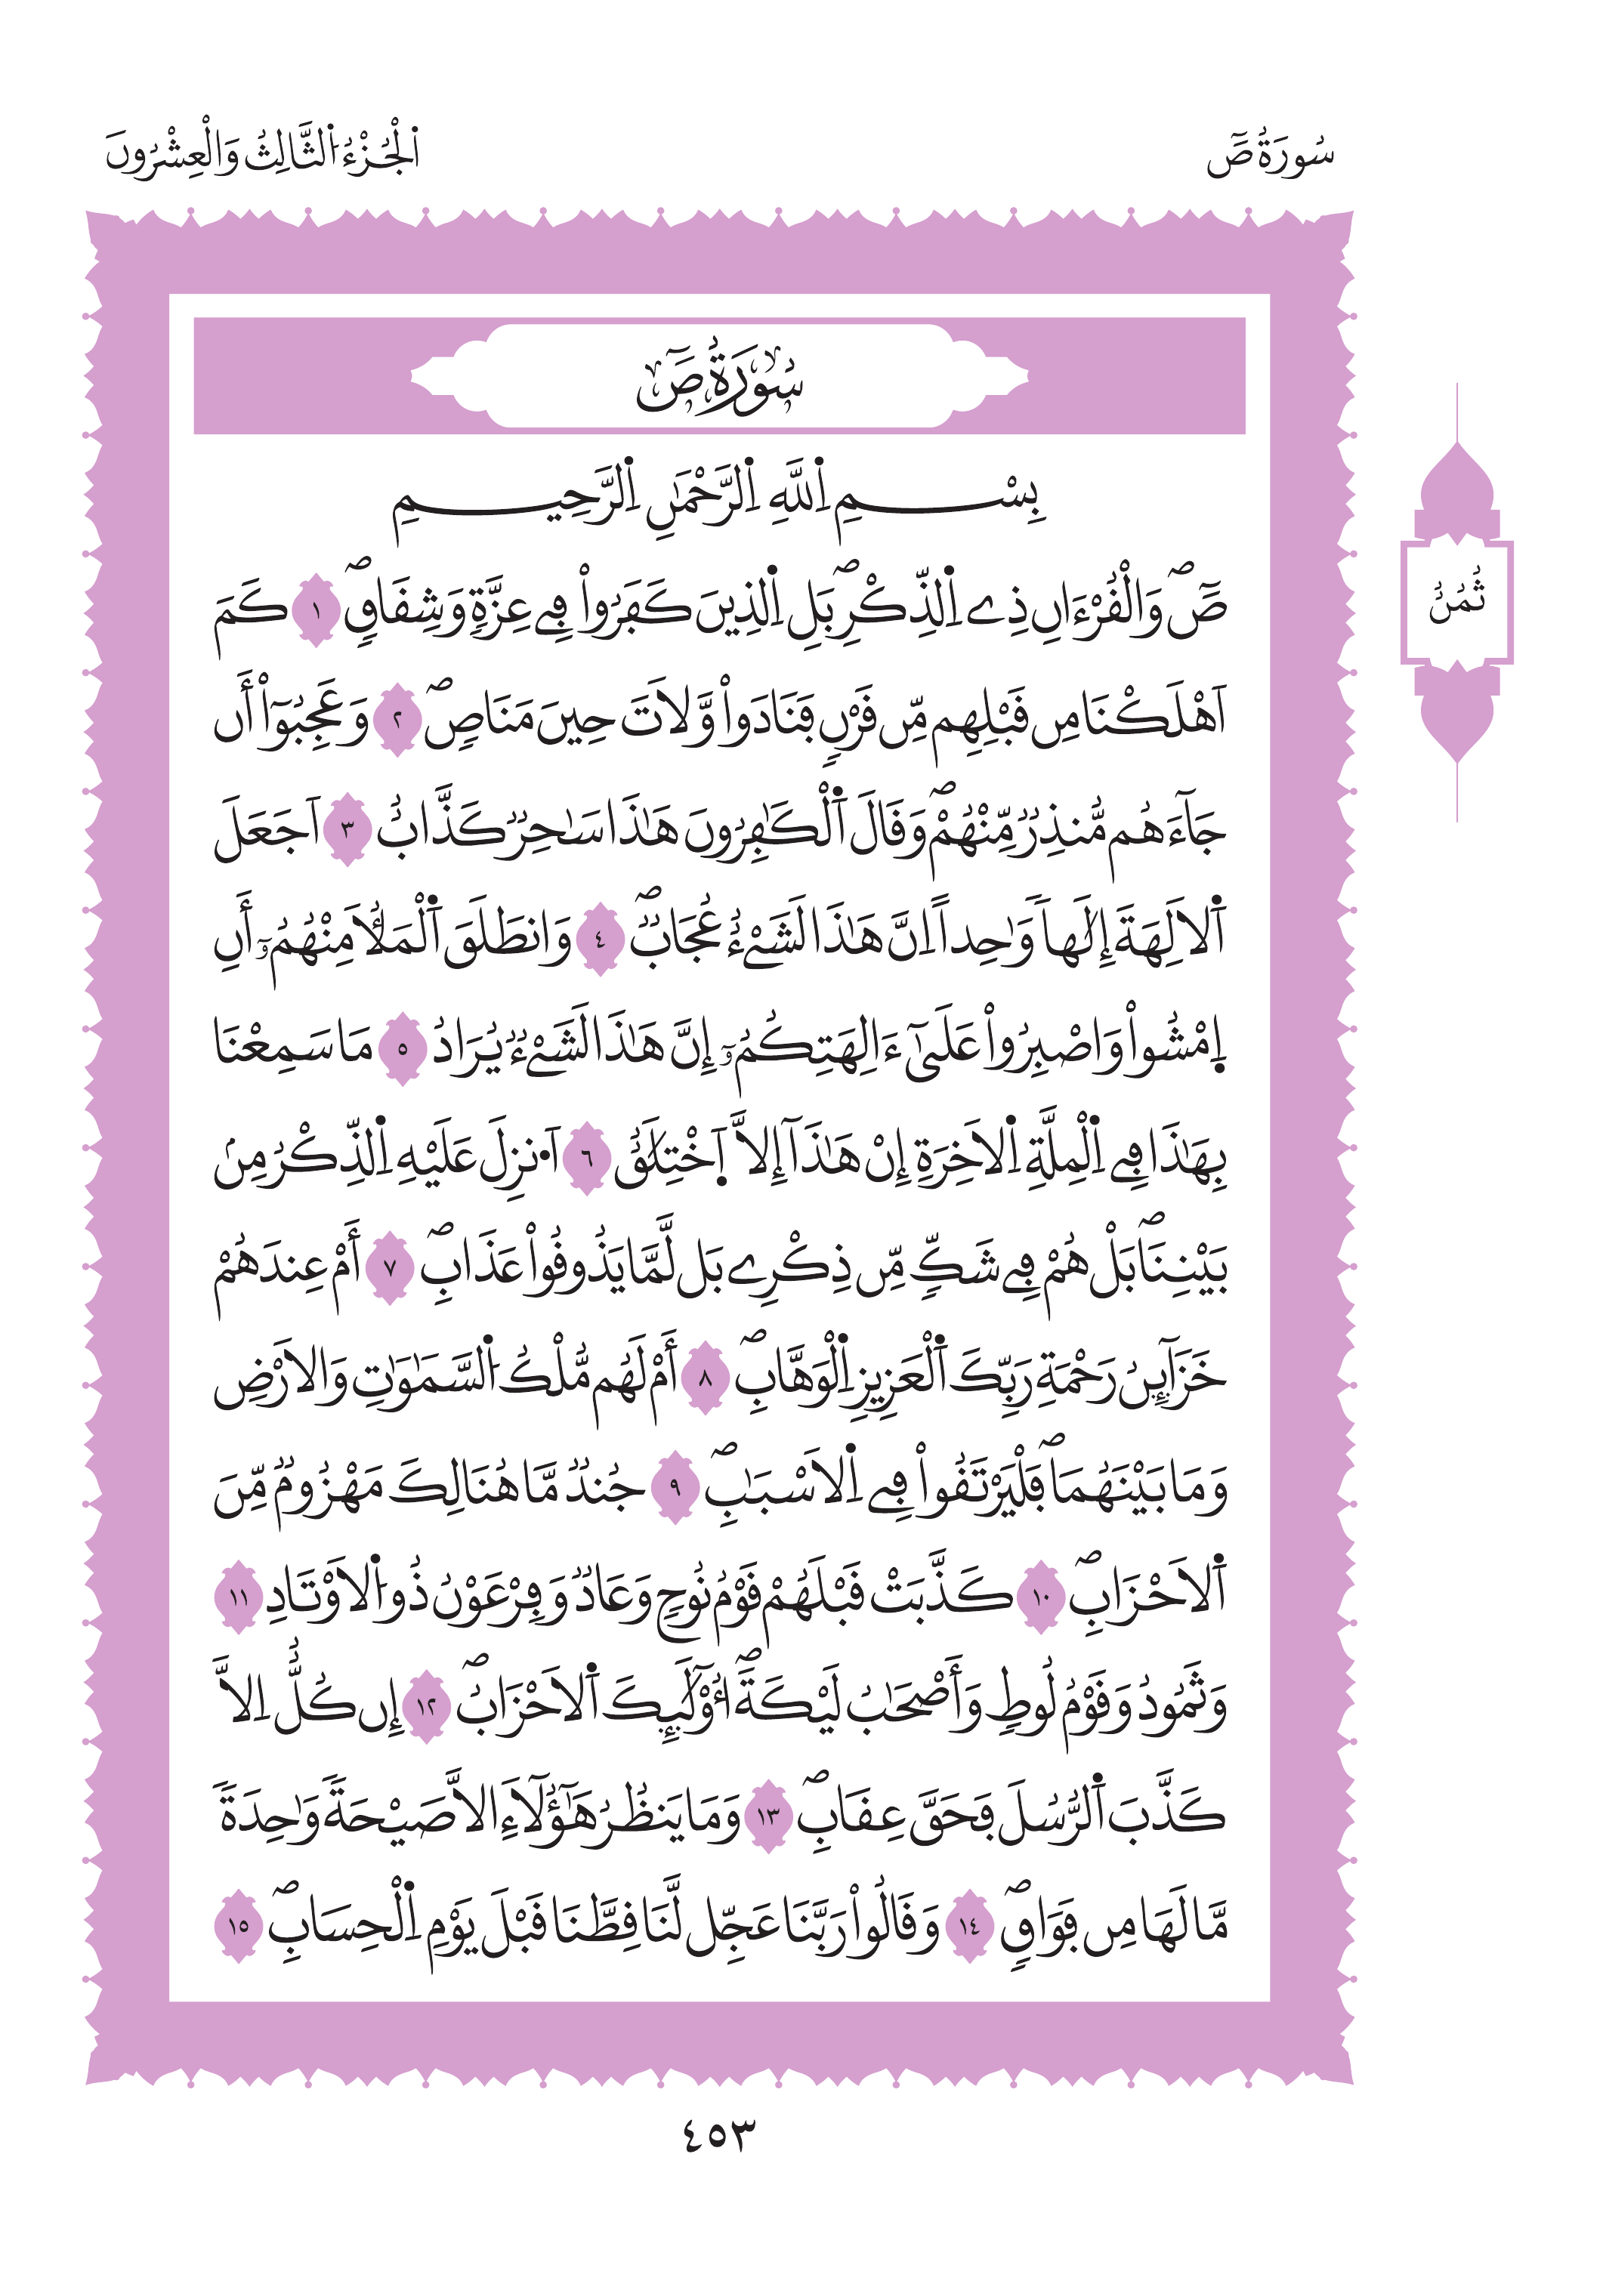 سُورَةُ صَٓ
اُ۬لْجُزْءُ اُ۬لثَّالِثُ وَالْعِشْرُونَ
سُورَةُ صَٓ
ثُمُنُ
بِسْمِ اِ۬للَّهِ اِ۬لرَّحْمَٰنِ اِ۬لرَّحِيمِ
صَٓۖ وَالْقُرْءَانِ ذِے اِ۬لذِّكْرِۖ بَلِ اِ۬لذِينَ كَفَرُواْ فِے عِزَّةٖ وَشِقَاقٖۖ ١ كَمَ
اَهْلَكْنَا مِن قَبْلِهِم مِّن قَرْنٖ فَنَادَواْ وَّلَاتَ حِينَ مَنَاصٖۖ ٢ وَعَجِبُوٓاْ أَن
جَآءَهُم مُّنذِرٞ مِّنْهُمْۖ وَقَالَ اَ۬لْكَٰفِرُونَ هَٰذَا سَٰحِرٞ كَذَّابٌ ٣ اَجَعَلَ
اَ۬لَالِهَةَ إِلَٰهاٗ وَٰحِداً اِنَّ هَٰذَا لَشَےْءٌ عُجَابٞۖ ٤ وَانطَلَقَ اَ۬لْمَلَأُ مِنْهُمُۥٓ أَنِ
اِ۪مْشُواْ وَاصْبِرُواْ عَلَيٰٓ ءَالِهَتِكُمُۥٓ إِنَّ هَٰذَا لَشَےْءٞ يُرَادُ ٥ مَا سَمِعْنَا
بِهَٰذَا فِے اِ۬لْمِلَّةِ اِ۬لَاخِرَةِ إِنْ هَٰذَآ إِلَّا اَ۪خْتِلَٰقٌ ٦ اَ۟نزِلَ عَلَيْهِ اِ۬لذِّكْرُ مِنۢ
بَيْنِنَاۖ بَلْ هُمْ فِے شَكّٖ مِّن ذِكْرِے بَل لَّمَّا يَذُوقُواْ عَذَابِۖ ٧ أَمْ عِندَهُمْ
خَزَآئِنُ رَحْمَةِ رَبِّكَ اَ۬لْعَزِيزِ اِ۬لْوَهَّابِۖ ٨ أَمْ لَهُم مُّلْكُ اُ۬لسَّمَٰوَٰتِ وَالَارْضِ
وَمَا بَيْنَهُمَاۖ فَلْيَرْتَقُواْ فِے اِ۬لَاسْبَٰبِۖ ٩ جُندٞ مَّا هُنَالِكَ مَهْزُومٞ مِّنَ
اَ۬لَاحْزَابِۖ ١٠ كَذَّبَتْ قَبْلَهُمْ قَوْمُ نُوحٖ وَعَادٞ وَفِرْعَوْنُ ذُو اُ۬لَاوْتَادِ ١١
وَثَمُودُ وَقَوْمُ لُوطٖ وَأَصْحَٰبُ لَيْكَةَۖ أُوْلَٰٓئِكَ اَ۬لَاحْزَابُۖ ١٢ إِن كُلٌّ اِلَّا
كَذَّبَ اَ۬لرُّسُلَ فَحَقَّ عِقَابِۖ ١٣ وَمَا يَنظُرُ هَٰٓؤُلَآءِ الَّا صَيْحَةٗ وَٰحِدَةٗ
مَّا لَهَا مِن فَوَاقٖۖ ١٤ وَقَالُواْ رَبَّنَا عَجِّل لَّنَا قِطَّنَا قَبْلَ يَوْمِ اِ۬لْحِسَابِۖ ١٥
٤٥٣